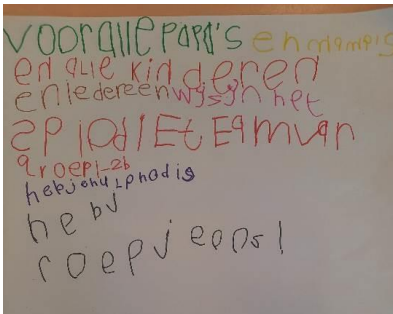 voor alle papa's en mama's
en alle kinderen
en iedereen wij zijn het
SPIODIEtEam van
groep 1-2b
heb je hulp nodig
heb j
roep j eops!